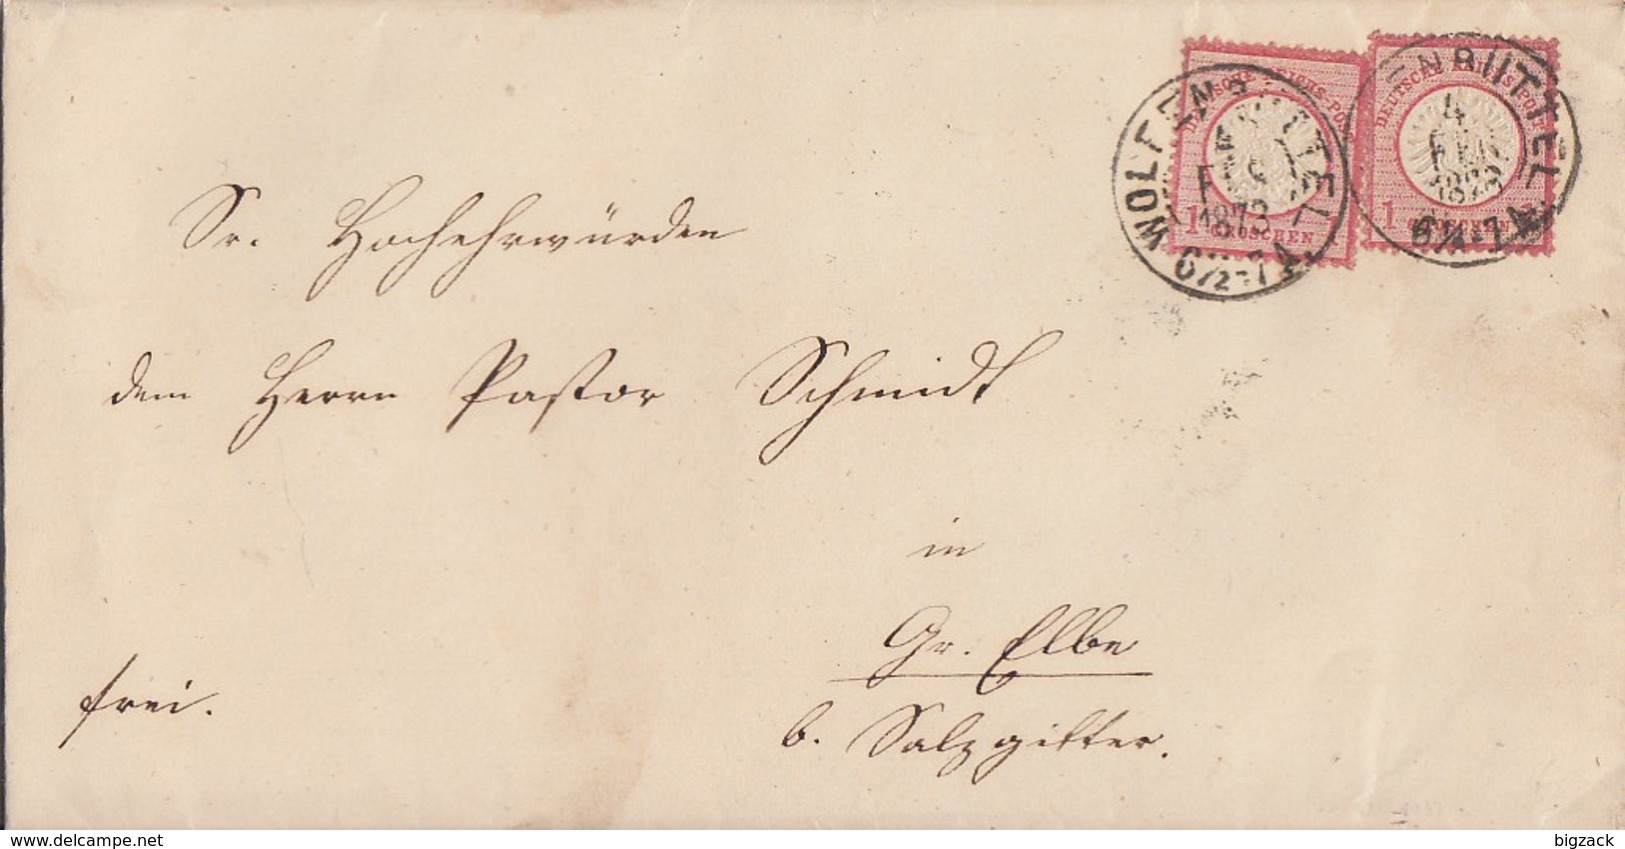 DEUTSCHE REICHS-POST
1 GROSCHEN
DEUTSCHE REICHS-POST
1 GROSCHEN
WOLFENBÜTTEL
1873
6½-7A.
ENBÜTTEL
4
FEB
1873
6½-7A.
Sr. Hochehrwürden
dem Herrn Pastor Schmidt
in
Gr. Elbe
frei.
b. Salzgitter.
delcampe.net
bigzack